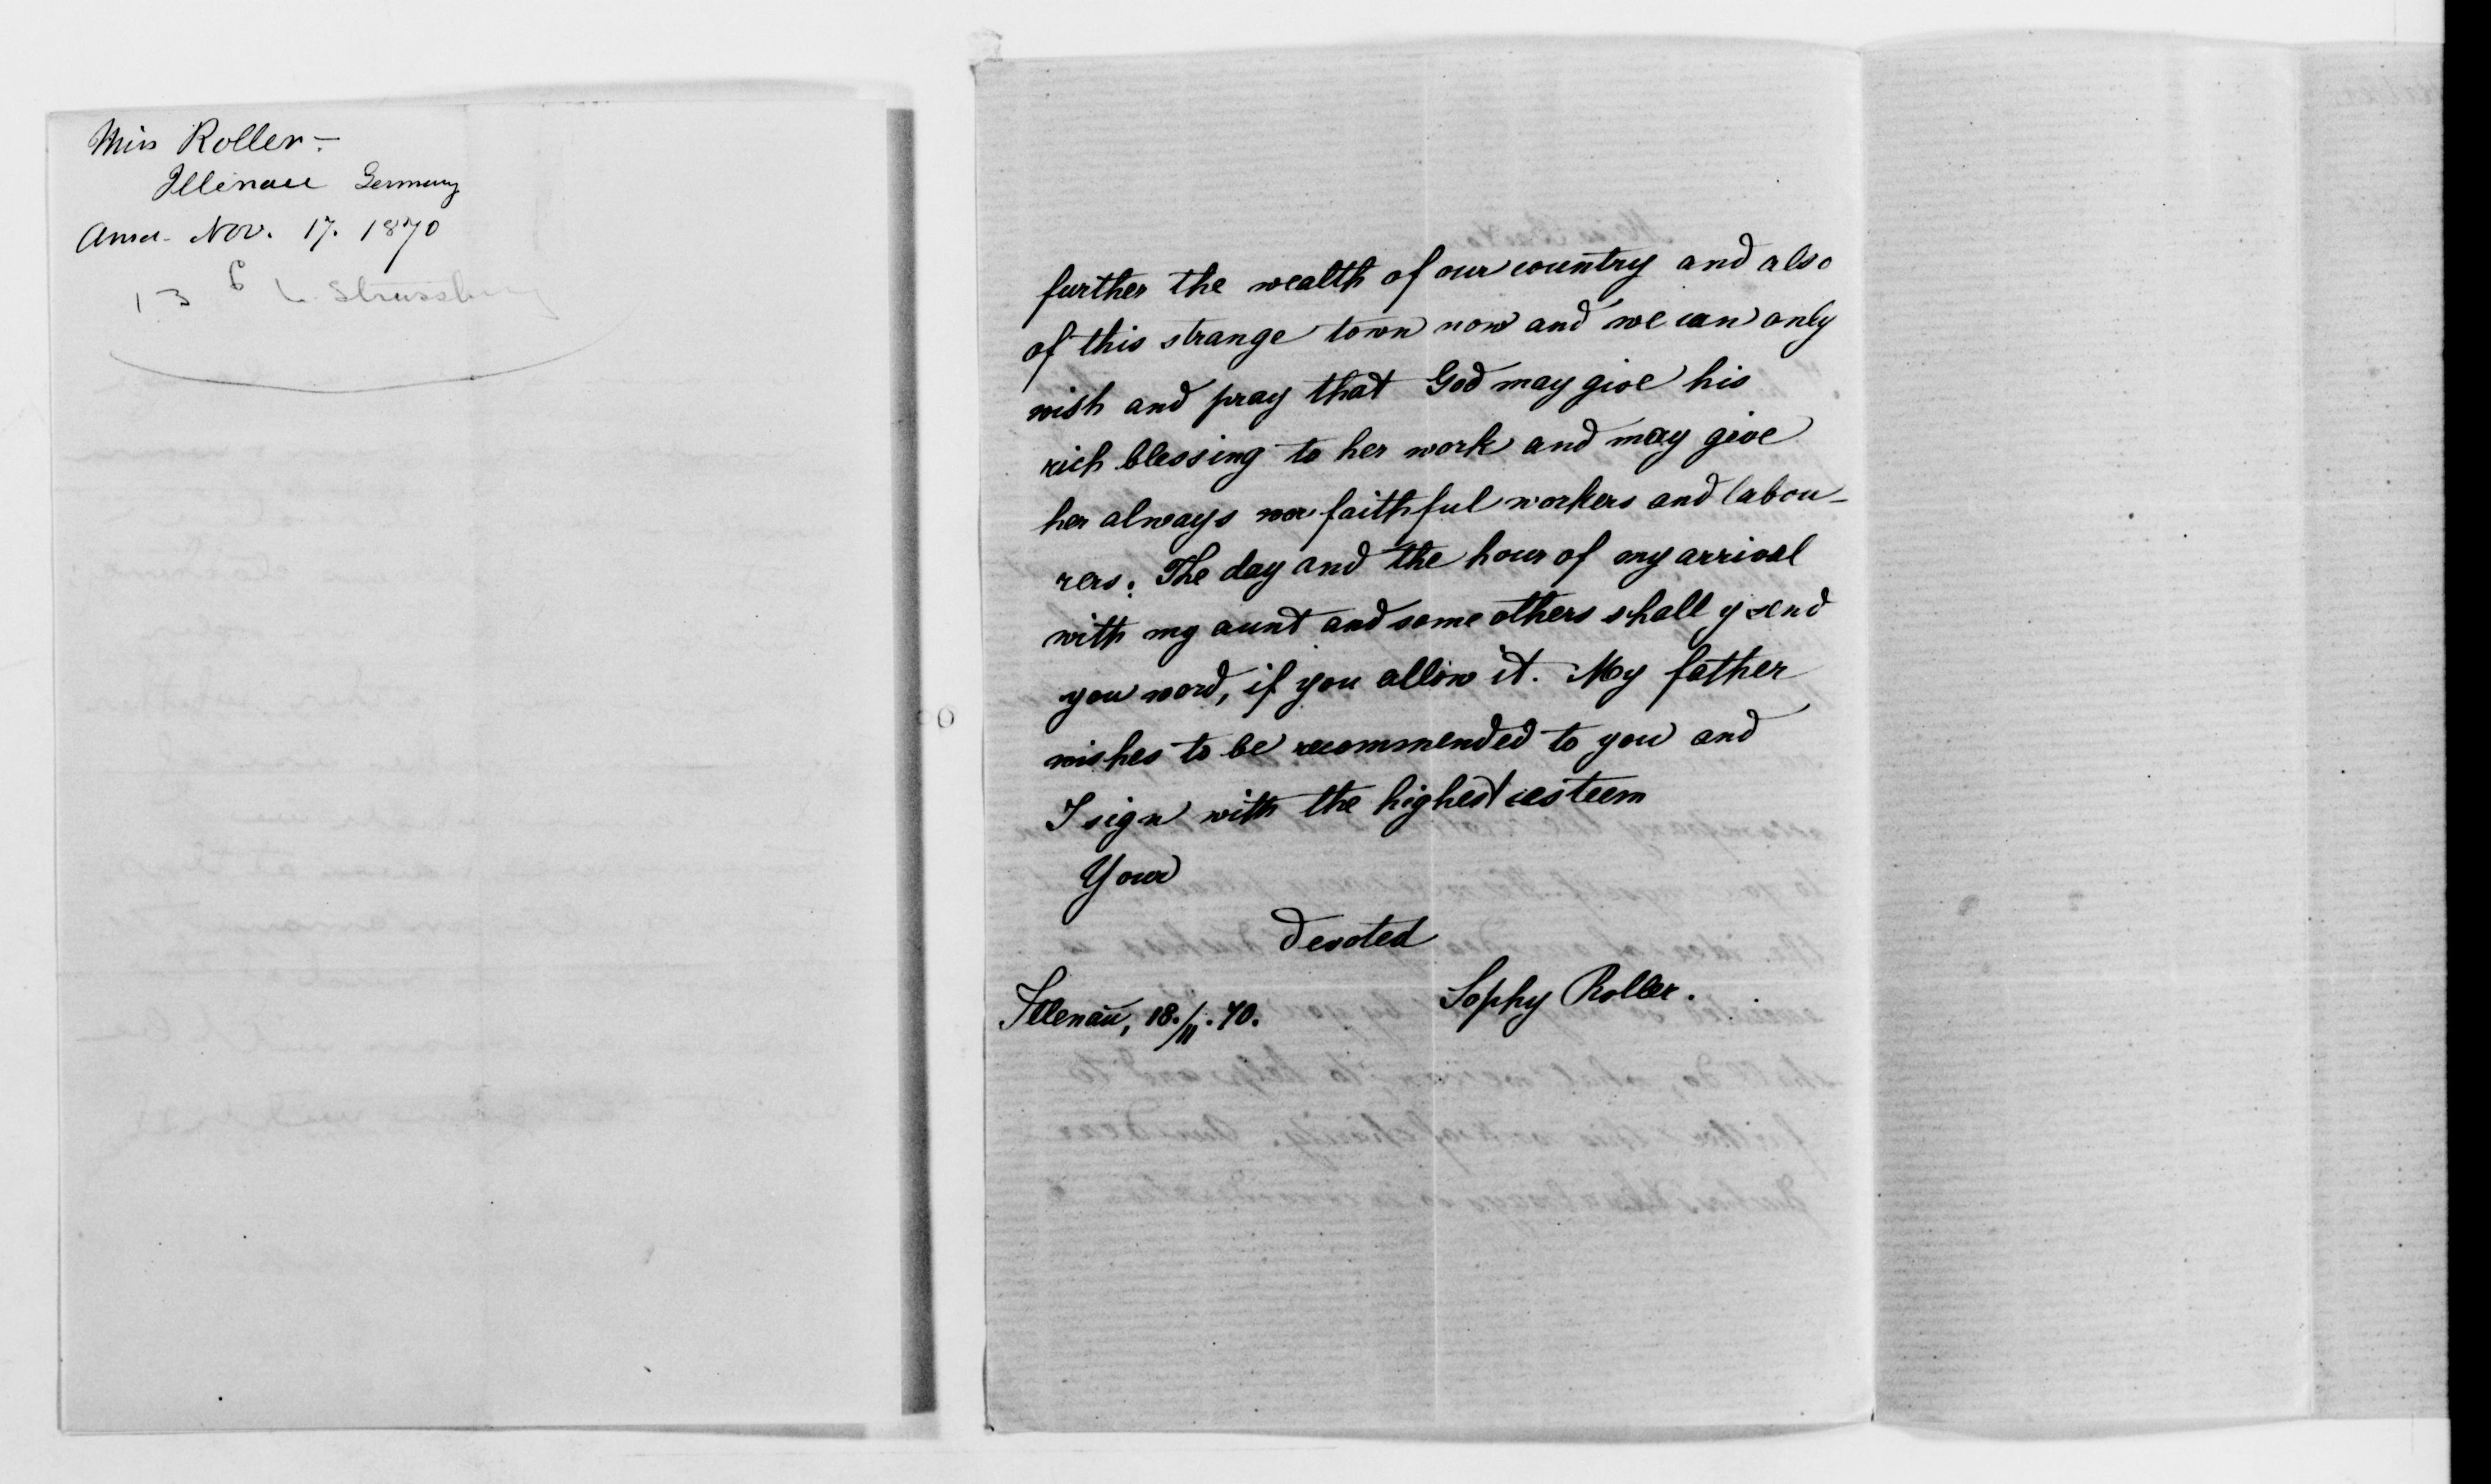 Miss Roller –
Illenau Germany
Ansd. Nov. 17. 1870
13 Strassburg
further the wealth of our country and also
of this strange town now and we can only
wish and pray that God may give his
rich blessing to her work and may give
her always faithful workers and labou-
rers. The day and the hour of my arrival
with my aunt and some others shall y send
you word, if you allow it. My father
wishes to be recommended to you and
I sign with the highest esteem
Your
devoted
Sophy Roller.
Illenau, 18./11.70.